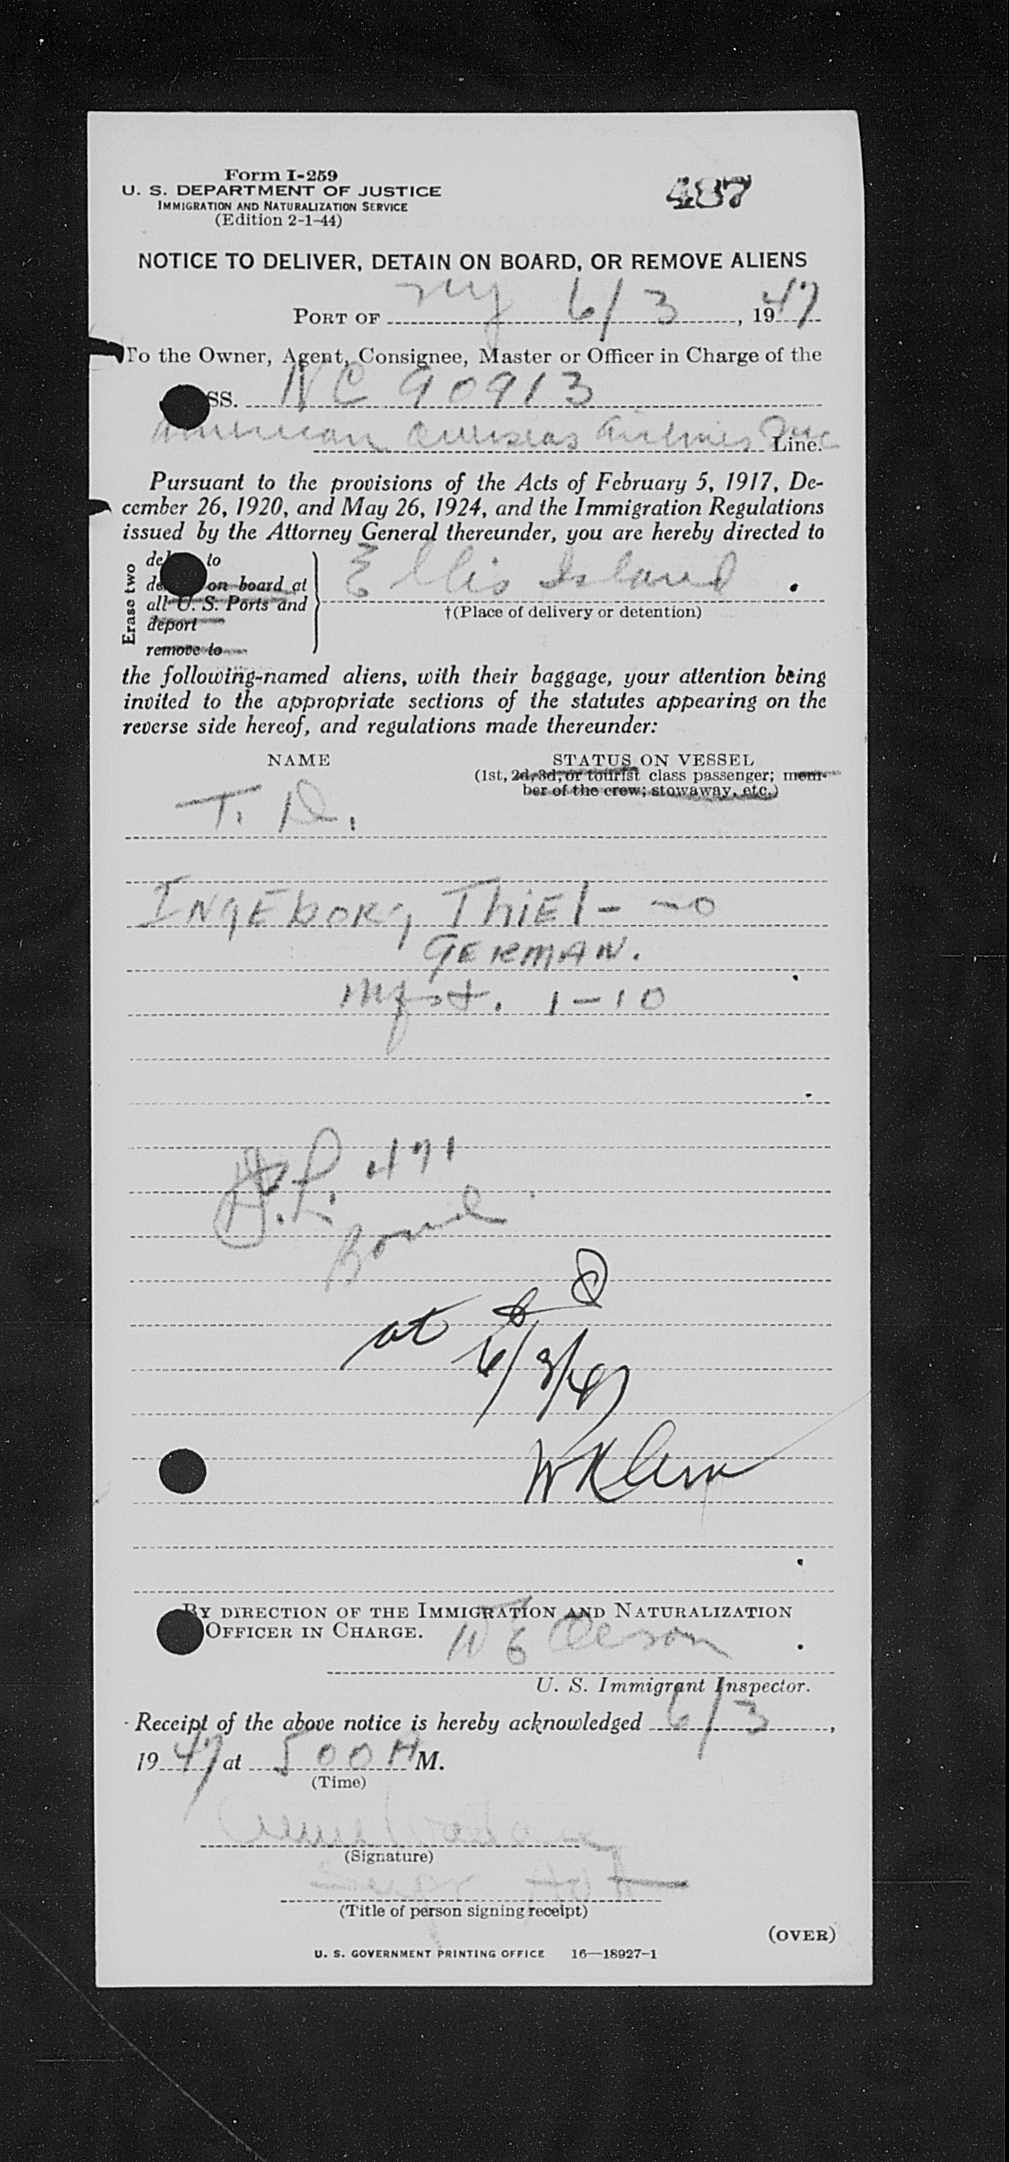 Form I-259
U. S. DEPARTMENT OF JUSTICE
IMMIGRATION AND NATURALIZATION SERVICE
(Edition 2-1-44)
487
NOTICE TO DELIVER, DETAIN ON BOARD, OR REMOVE ALIENS
PORT OF NY 6/3, 1947
To the Owner, Agent, Consignee, Master or Officer in Charge of the
SS. NC 90913
American Overseas Airlines Inc Line.
Pursuant to the provisions of the Acts of February 5, 1917, De-
cember 26, 1920, and May 26, 1924, and the Immigration Regulations
issued by the Attorney General thereunder, you are hereby directed to
Erase two
to
on board at
all U. S. Ports and
deport
remove to
Ellis Island
†(Place of delivery or detention)
the following-named aliens, with their baggage, your attention being
invited to the appropriate sections of the statutes appearing on the
reverse side hereof, and regulations made thereunder:
NAME
STATUS ON VESSEL
(1st, 2d, 3d, or tourist class passenger; mem-
ber of the crew; stowaway, etc.)
T. D.
INGEBORG THIEL
GERMAN.
Mfst. 1-10
471
Bond
at
6/3/47
BY DIRECTION OF THE IMMIGRATION AND NATURALIZATION
OFFICER IN CHARGE.
U. S. Immigrant Inspector.
Receipt of the above notice is hereby acknowledged 6/3,
1947 at 500 M.
(Time)
(Signature)
(Title of person signing receipt)
(OVER)
U. S. GOVERNMENT PRINTING OFFICE 16—18927-1